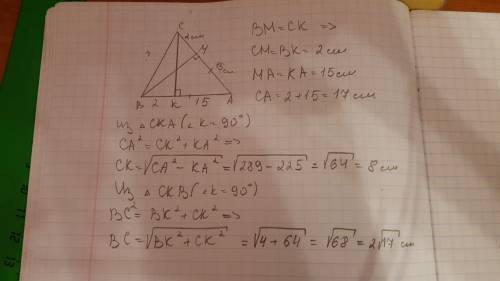 C
2см
?
М
15см
B 2 K 15 A
BM=CK =>
CM=BK=2см
MA=KA=15см
CA=2+15=17см
Из △CKA(∠K=90°)
CA²=CK²+KA² =>
CK=√CA²-KA²=√289-225=√64=8см
Из △CKB(∠K=90°)
BC²=BK²+CK² =>
BC=√BK²+CK² =√4+64=√68=2√17см